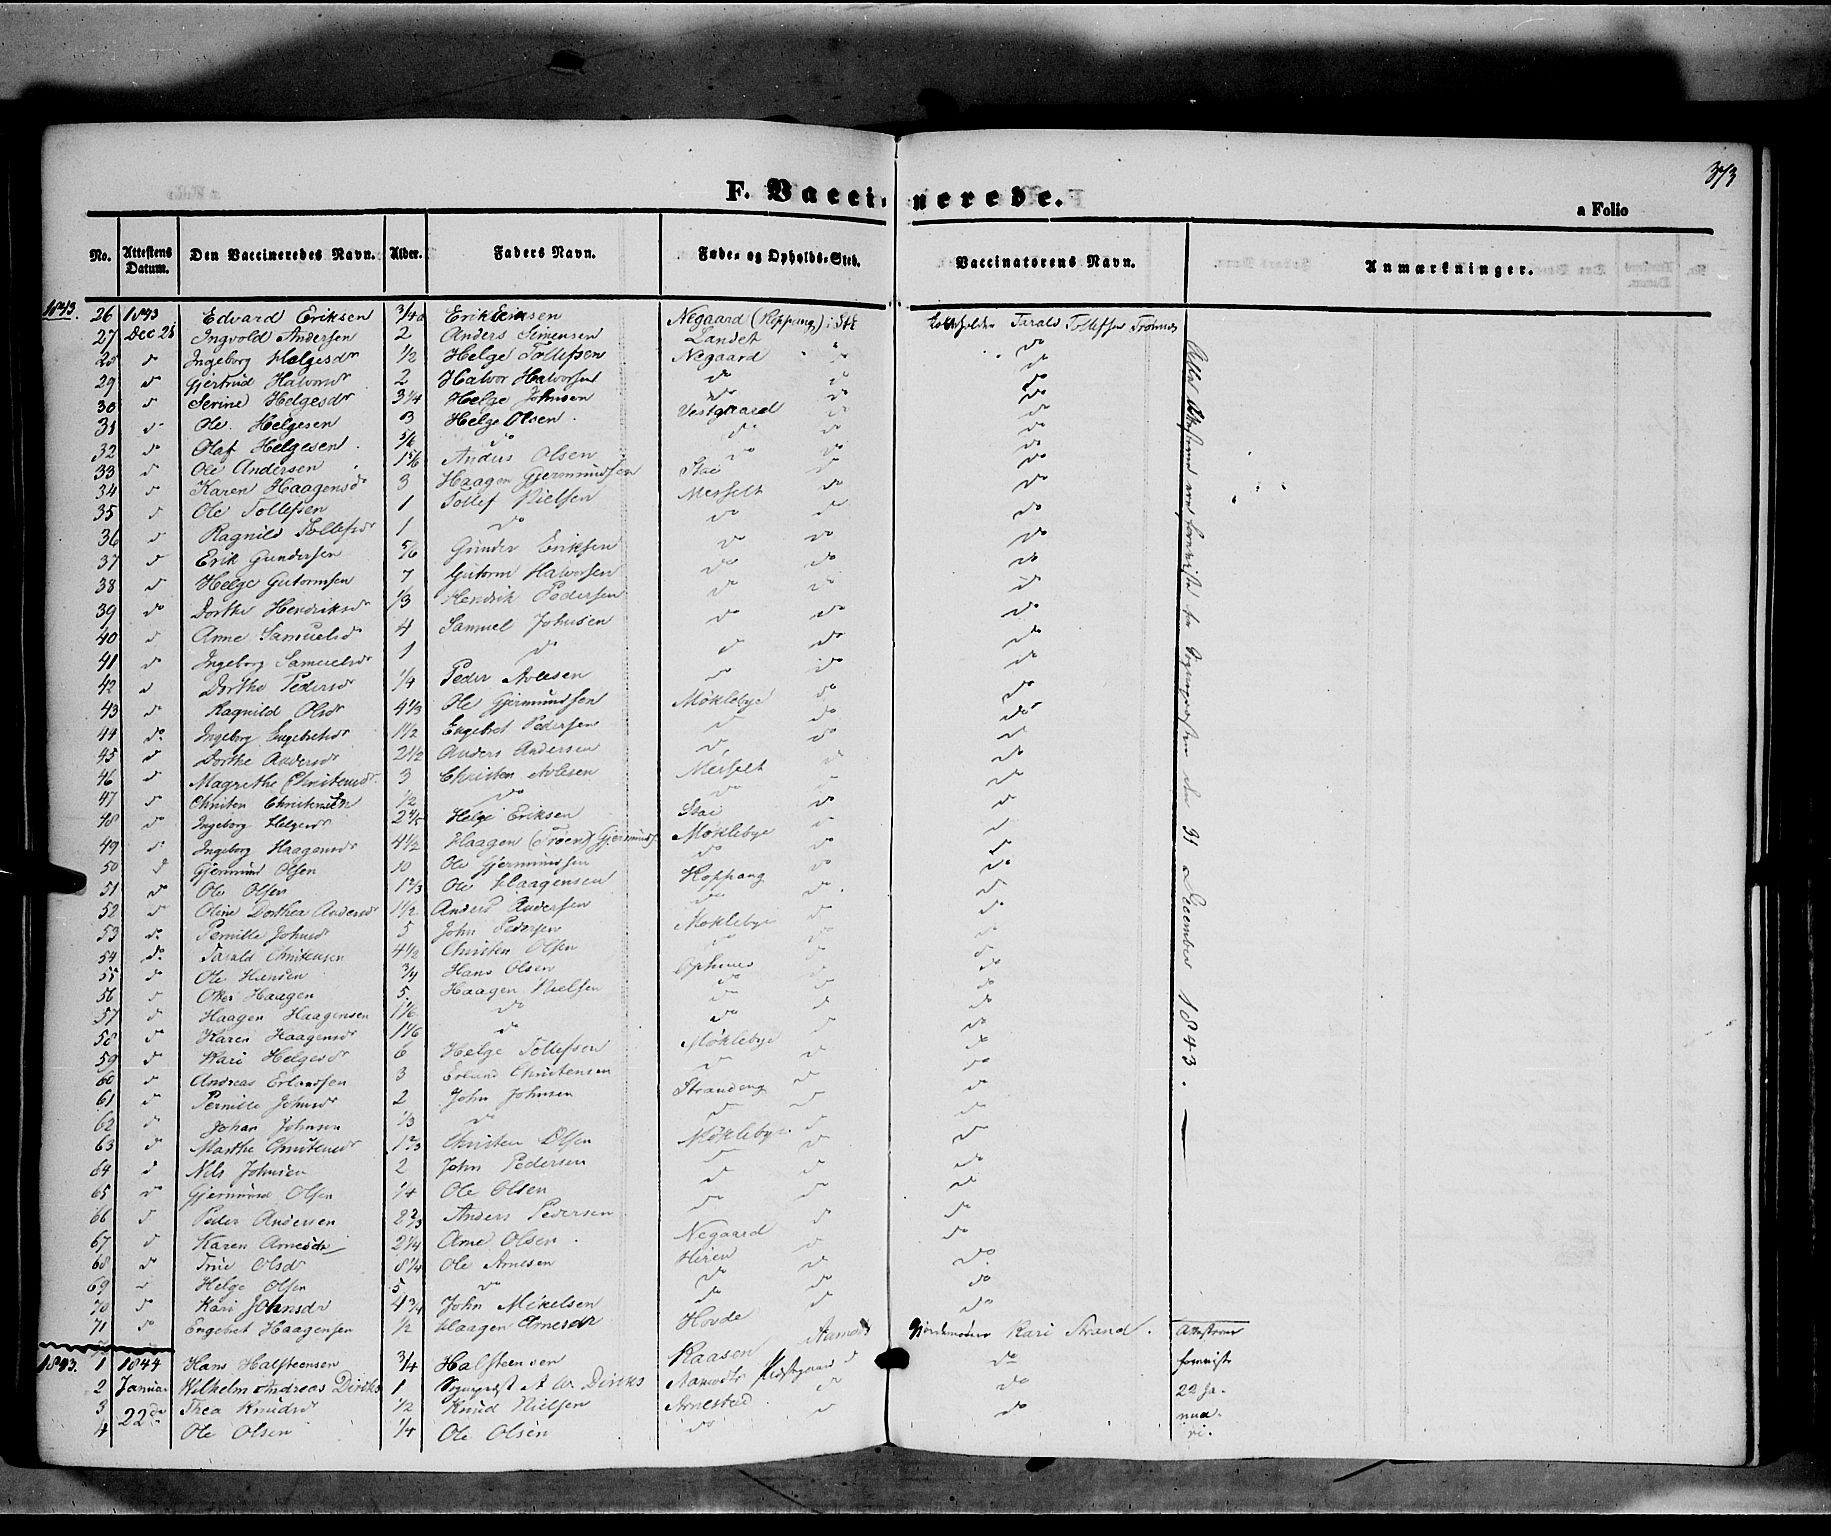 373
F. Vaccinerede.
a Folio
No. Attestens Datum. Den Vaccineredes Navn. Alder. Faders Navn. Føde- og Opholds-Sted. Vaccinatorens Navn. Anmærkninger.
1843. 26 1843 Edvard Eriksen 3/4 Erik Negaard (Koppang) i Tarald Tollefsen
27 Dec 28 Ingvold Andersen 2 Anders Simensen Landet do
28 d Ingeborg Helgesdr 1/2 Helge Tollefsen Negaard do do
29 d Gjertrud Halvorsdr 2 Halvor Halvorsen do do do
30 d Serine Helgesdr 3 1/4 Helge Johnsen do do do
31 d Ole Helgesen 3 Helge Olsen Vestgaard do do
32 d Olaf Helgesen 5/6 do do do do
33 d Ole Andersen 1 5/6 Anders Olsen do do do
34 d Karen Haagensdr 3 Haagen Gjermundsen Stai do do
35 d Ole Tollefsen 1 Tollef Nielsen Messelt do do
36 d Ragnild Tollefsdr 1 do do do do
37 d Erik Gundersen 5/6 Gunder Eriksen do do do
38 d Helge Guttormsen 7 Guttorm Halvorsen do do do
39 do Dorthe Hendriksdr 1/3 Hendrik Pedersen do do do
40 d Anne Samuelsdr 4 Samuel Johnsen do do do
41 do Ingeborg Samuelsdr 1 do do do do
42 d Dorthe Pedersdr 1/4 Peder Avlesen do do do
43 do Ragnild Olsdr 4 1/3 Ole Gjermundsen Møklebye do do
44 do Ingeborg Engebretsdr 1 1/2 Engebret Pedersen do do do
45 d Dorthe Andersdr 2 1/2 Anders Andersen do do do
46 d Magrethe Christensdr 3 Christen Avlesen Messelt do do
47 d Christen Christensen 1/2 do do do do
48 do Ingeborg Helgesdr Helge Eriksen Stai do d
49 d Ingeborg Haagensdr 4 1/2 Haagen (Troen) Gjermunds Møklebye do d
50 d Gjermund Olsen 10 Ole Gjermundsen do do do
51 do Ole Olsen 1 2/3 Ole Haagensen Koppang do do
52 do Oline Dorthea Andersdr 1 1/2 Anders Andersen do d do
53 do Pernille Johnsdr 5 John Pedersen Møklebye d do
54 do Tarald Christensen 4 1/2 Christen Olsen do d do
55 do Ole Hansen 3/4 Hans Olsen Ophuus d do
56 d Haagen 5 Haagen Nielsen do d do
57 d Haagen Haagensen 1 1/6 do do d do
58 do Karen Haagensdr 1 1/6 do do d do
59 do Kari Helgesdr 6 Helge Tollefsen Møklebye do
60 d Andreas Erlandsen 3 Erland Christensen do d do
61 do Pernille Johnsdr 2 John Johnsen Strandeng do do
62 d Johan Johnsen 1/3 do do do do
63 d Marthe Christensdr 1 2/3 Christen Olsen Møklebye d do
64 d Nils Johnsen 2 John Pedersen do d do
65 do Gjermund Olsen 1/4 Ole Olsen d d do
66 d Peder Andersen 2 2/3 Anders Pedersen do d do
67 d Karen Arnesdr 2 1/4 Arne Olsen Negaard d do
68 do Olsdr 8 1/4 Ole Arnesen Hiren do do
69 d Helge Olsen 5 do do do do
70 do Kari Johnsdr 4 3/4 John Mikelsen do d do
71 do Engebret Haagensen 1/2 Haagen Hovde
Attesterne ere fremviste for den 31 December 1843.
1843. 1 1844 Hans Halfsteensen 3/4 Halfsteensen Kaasen Aamodt Gjordemoder Kari Strand. Attesterne
2 Januar Wilhelm Andreas Diriks 1 Sognepræst A. W. Diriks Aamodts Præstgaard d do fremviste
3 22de Thea Knudsdr 1/2 Knud Nielsen Arnestad d do 22 Ja-
4 Ole Olsen 1/4 Ole Olsen do d do nua-
ri.